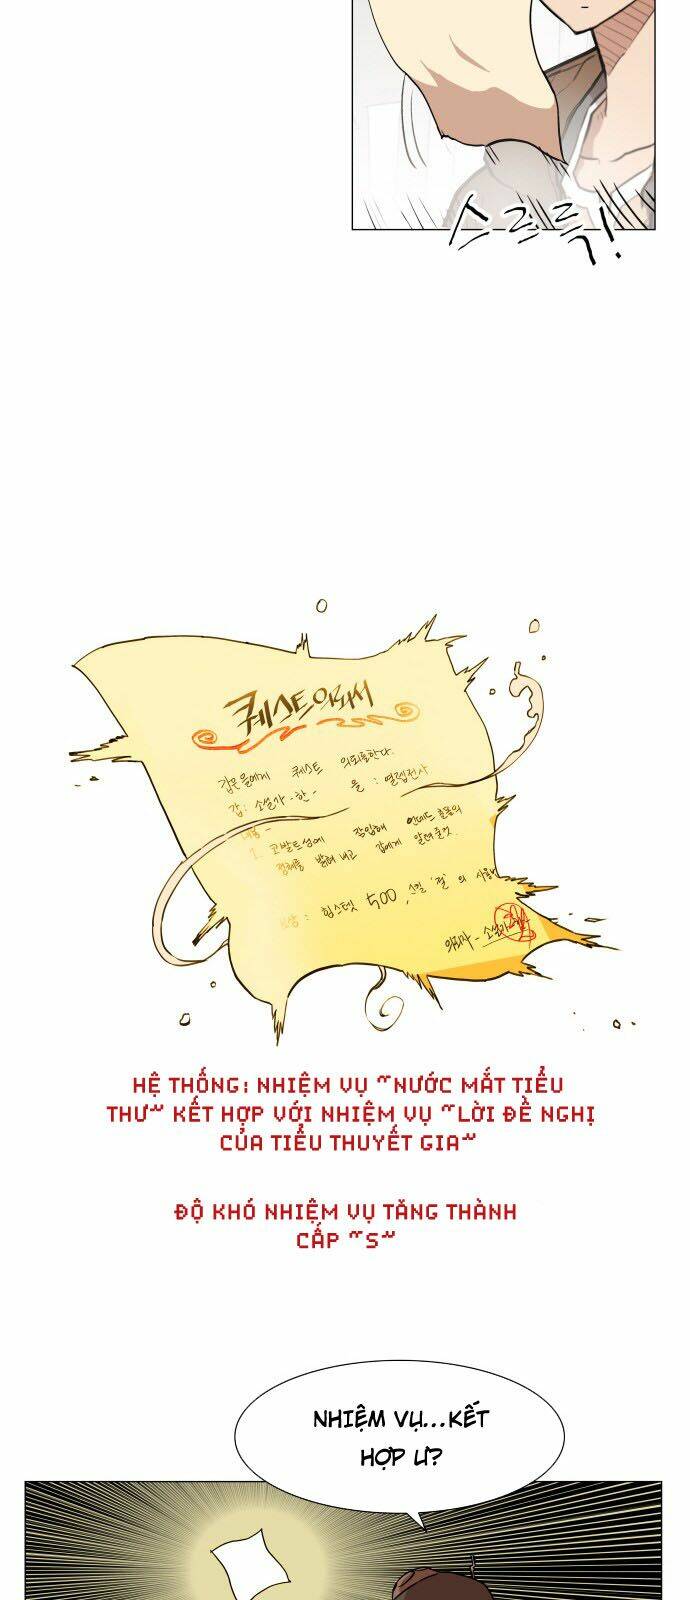 스르륵!
퀘스트의뢰서
갑은을에게 퀘스트 의뢰를한다.
갑: 소설가-한- 을: 열렙전사
내용-
1. 코발트성에 잠입해 언데드 출몰의
정체를 밝혀내고 갑에게 알려줄것.
보상: 힙스뎃 500, 스킬 '절'의 사용
의뢰자-소설가
HỆ THỐNG: NHIỆM VỤ "NƯỚC MẮT TIỂU
THƯ" KẾT HỢP VỚI NHIỆM VỤ "LỜI ĐỀ NGHỊ
CỦA TIỂU THUYẾT GIA"
ĐỘ KHÓ NHIỆM VỤ TĂNG THÀNH
CẤP "S"
NHIỆM VỤ...KẾT
HỢP Ư?